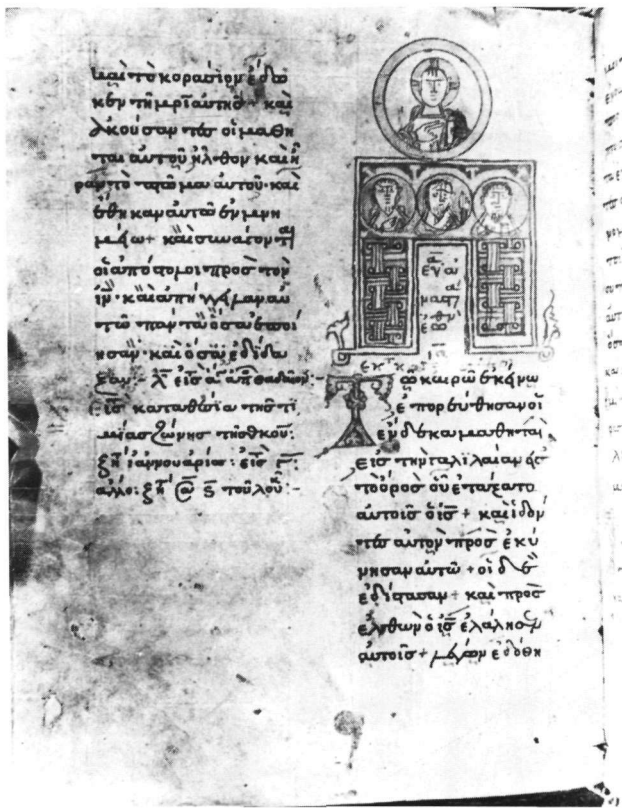 καὶ τὸ κοράσιον ἔδω
κεν τῇ μρὶ αὐτῆς + καὶ
ἀκούσαντες οἱ μαθη
ταὶ αὐτοῦ ἦλθον καὶ ἦ
ραν τὸ πτῶμα αὐτοῦ · καὶ
ἔθηκαν αὐτῶ ἐν μνη
μείω + καὶ συνάγονται
οἱ ἀπόστολοι πρὸς τὸν
ἰν · καὶ ἀπήγγειλαν αὐ
τῶ πάντα ὅσα ἐποί
ησαν · καὶ ὅσα ἐδίδα
ξαν
εἰς κατάθεσιν τῆς τι
μίας ζώνης τῆς θκου
ἰαννουαρίω : εἰς
ἄλλο : τοῦ λου
εὐα
α
ματθ
ἑωθι
ἐκ τ κτ
Τῶ καιρῶ ἐκείνω
ἐπορεύθησαν οἱ
ἕνδεκα μαθηταὶ
εἰς τὴν γαλιλαίαν εἰς
τὸ ὄρος οὗ ἐτάξατο
αὐτοῖς ὁ ις + καὶ ἰδόν
τες αὐτὸν προσεκύ
νησαν αὐτῶ + οἱ δὲ
ἐδίστασαν + καὶ προσ
ελθὼν ὁ ις ἐλάλησεν
αὐτοῖς + λέγων ἐδόθη